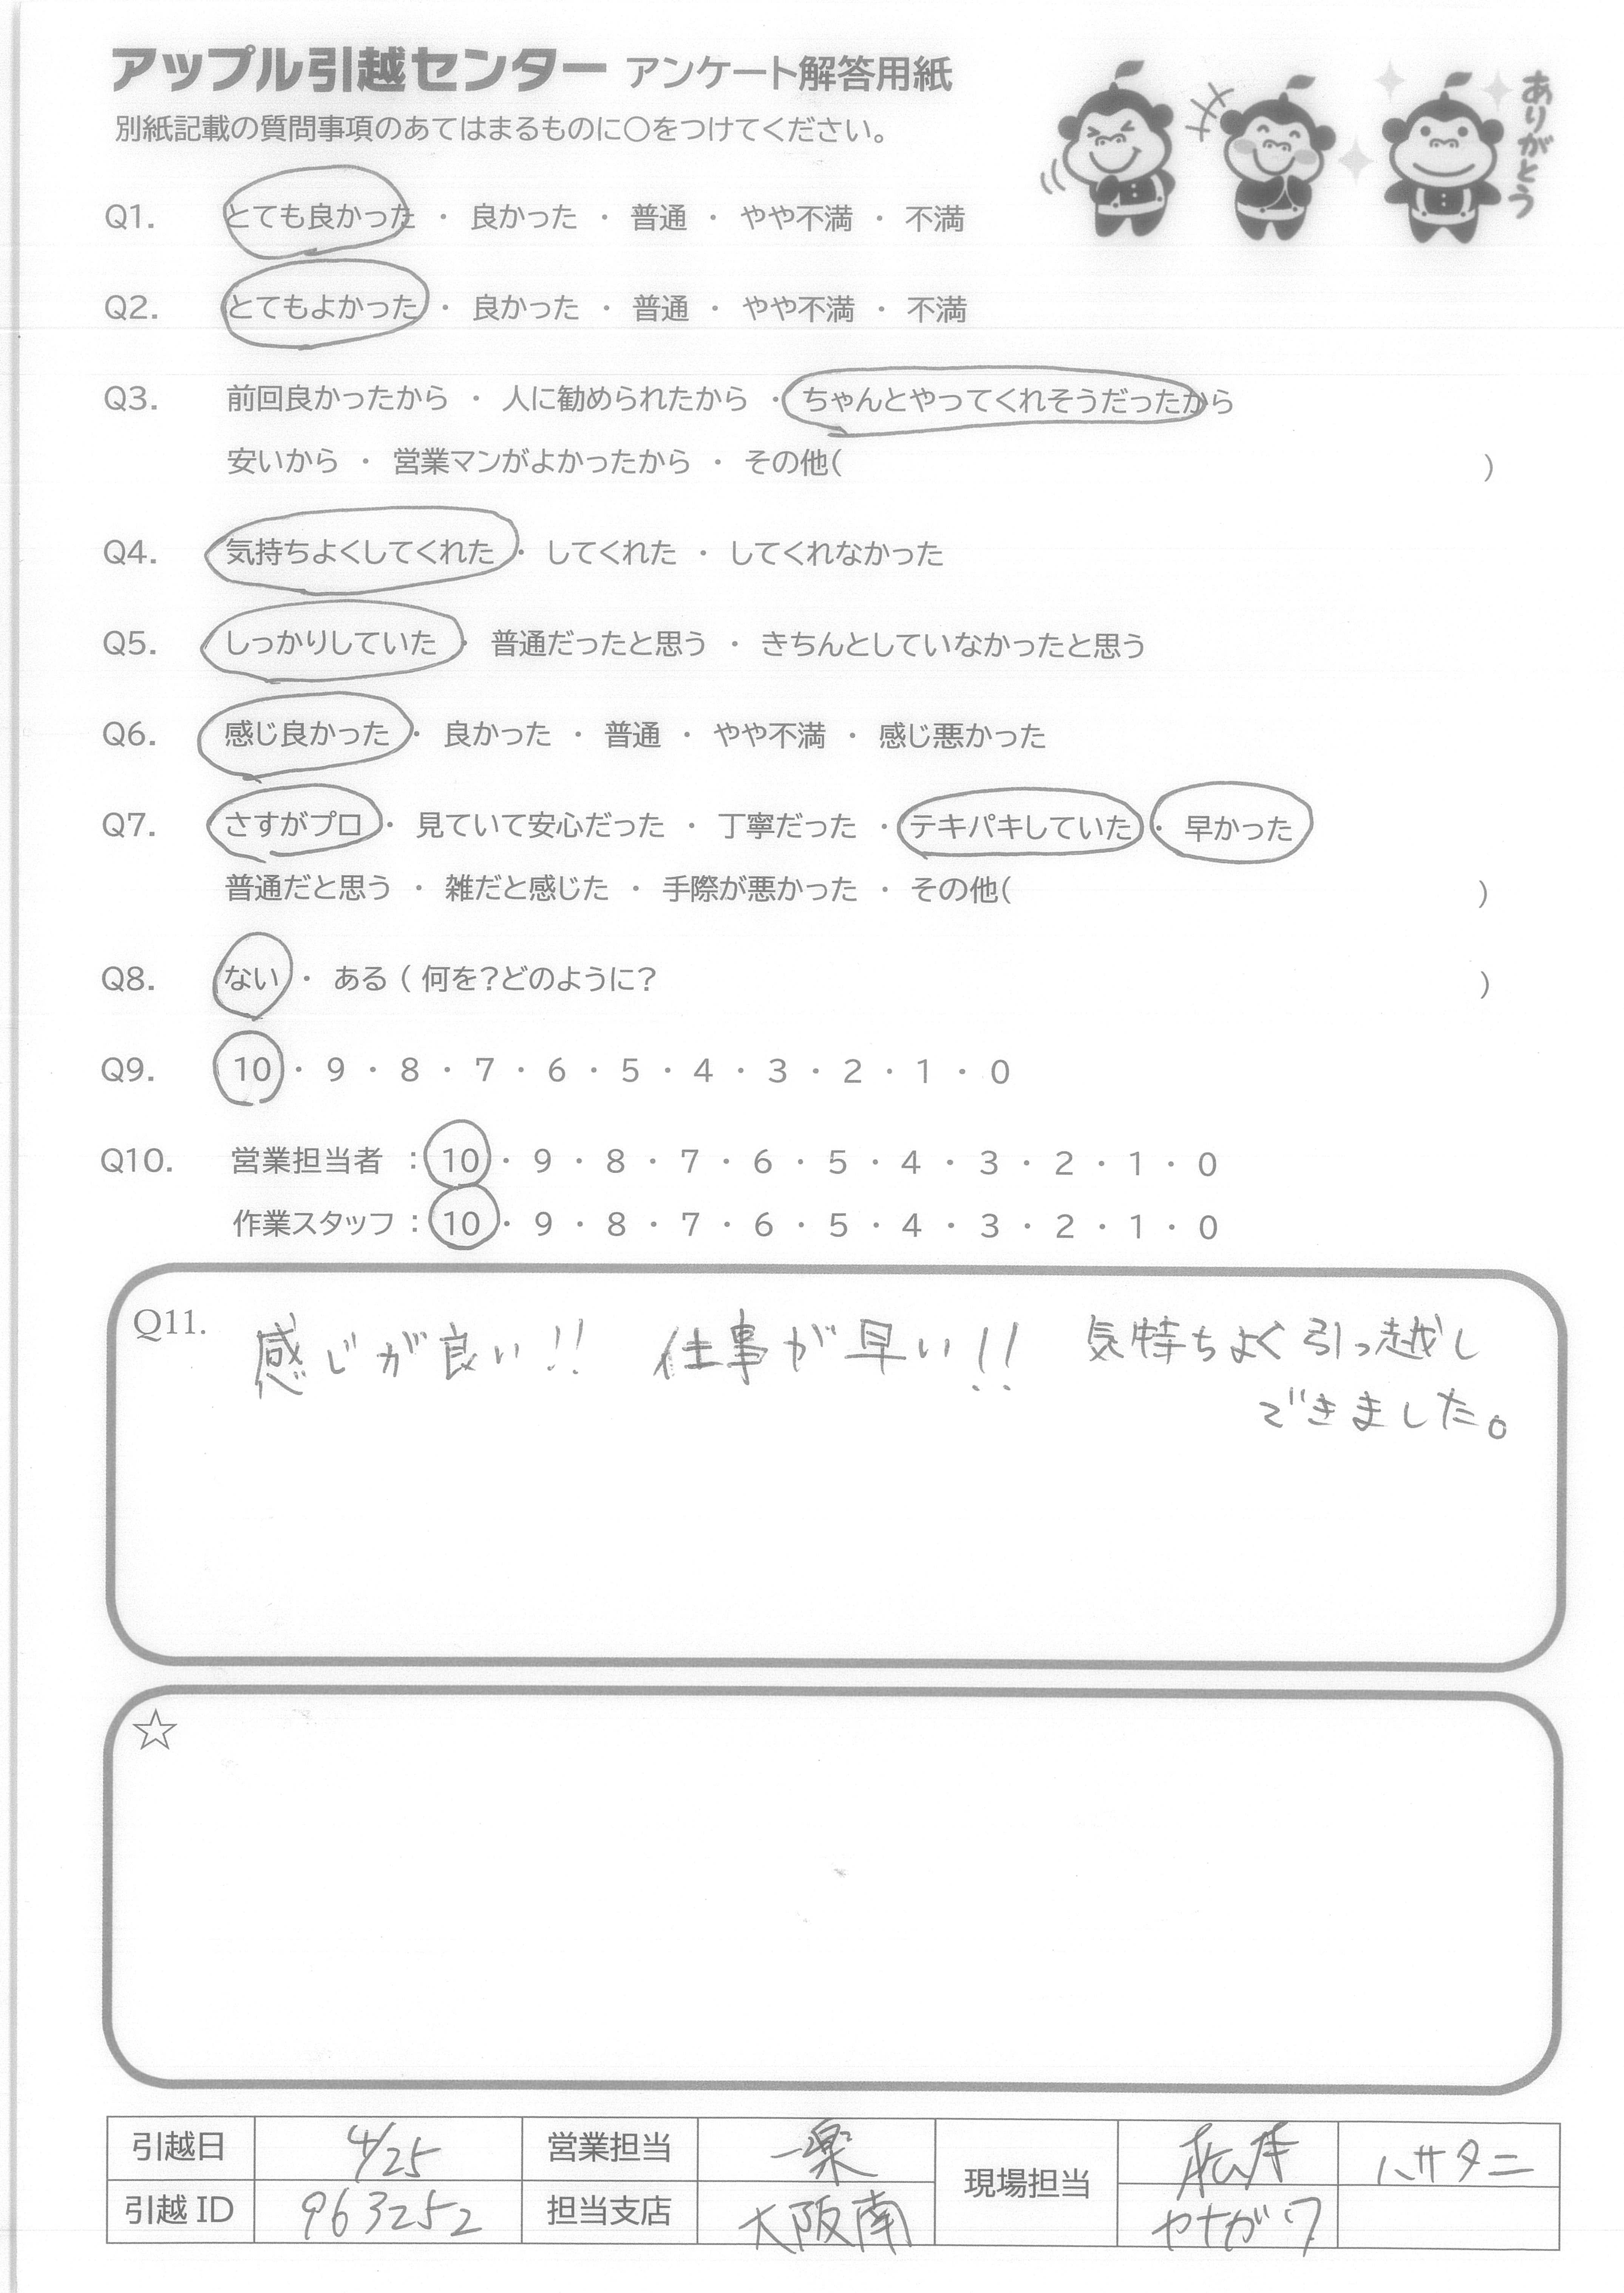 アップル引越センター アンケート解答用紙
別紙記載の質問事項のあてはまるものに〇をつけてください。
ありがとう
Q1. とても良かった ・ 良かった ・ 普通 ・ やや不満 ・ 不満
Q2. とてもよかった ・ 良かった ・ 普通 ・ やや不満 ・ 不満
Q3. 前回良かったから ・ 人に勧められたから ・ ちゃんとやってくれそうだったから
安いから ・ 営業マンがよかったから ・ その他( )
Q4. 気持ちよくしてくれた ・ してくれた ・ してくれなかった
Q5. しっかりしていた ・ 普通だったと思う ・ きちんとしていなかったと思う
Q6. 感じ良かった ・ 良かった ・ 普通 ・ やや不満 ・ 感じ悪かった
Q7. さすがプロ ・ 見ていて安心だった ・ 丁寧だった ・ テキパキしていた ・ 早かった
普通だと思う ・ 雑だと感じた ・ 手際が悪かった ・ その他( )
Q8. ない ・ ある ( 何を?どのように? )
Q9. 10 ・ 9 ・ 8 ・ 7 ・ 6 ・ 5 ・ 4 ・ 3 ・ 2 ・ 1 ・ 0
Q10. 営業担当者 : 10 ・ 9 ・ 8 ・ 7 ・ 6 ・ 5 ・ 4 ・ 3 ・ 2 ・ 1 ・ 0
作業スタッフ : 10 ・ 9 ・ 8 ・ 7 ・ 6 ・ 5 ・ 4 ・ 3 ・ 2 ・ 1 ・ 0
Q11. 感じが良い!! 仕事が早い!! 気持ちよく引っ越し
できました。
☆
引越日 4/25 営業担当 一楽 現場担当 松本 ハサタニ
引越ID 963252 担当支店 大阪南 やながワ